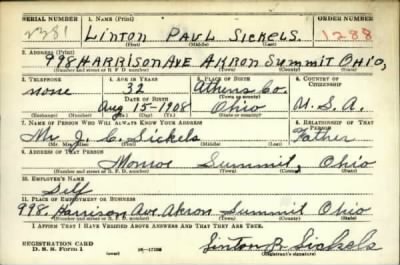 SERIAL NUMBER 1. NAME (Print) ORDER NUMBER
LINTON PAUL SICKELS. 1288
(First) (Middle) (Last)
2. ADDRESS (Print)
998 HARRISON AVE AKRON SUMMIT OHIO,
3. TELEPHONE 4. AGE IN YEARS 5. PLACE OF BIRTH 6. COUNTRY OF CITIZENSHIP
none 32 Athens Co.
DATE OF BIRTH (Town or county)
Aug 15-1908 Ohio U.S.A.
(Exchange) (Number) (Mo.) (Day) (Yr.) (State or country)
7. NAME OF PERSON WHO WILL ALWAYS KNOW YOUR ADDRESS 8. RELATIONSHIP OF THAT PERSON
Mr J. C. Sickels Father
(Mr., Mrs., Miss) (First) (Middle) (Last)
9. ADDRESS OF THAT PERSON
Monroe Summit, Ohio
10. EMPLOYER'S NAME
Self
11. PLACE OF EMPLOYMENT OR BUSINESS
998 Harrison Ave. Akron Summit Ohio
(Number and street or R. F. D. number) (Town) (County) (State)
I AFFIRM THAT I HAVE VERIFIED ABOVE ANSWERS AND THAT THEY ARE TRUE.
REGISTRATION CARD
D. S. S. Form 1
Linton P. Sickels
(Registrant's signature)